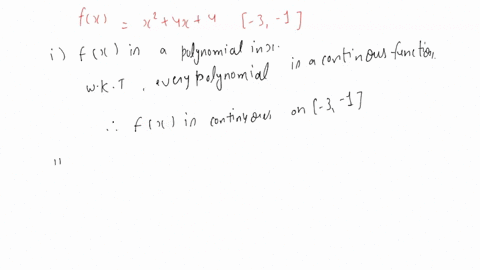 f(x) = x² + 4x + 4 [-3, -1]
i) f(x) is a polynomial in x.
w.k.T, every polynomial is a continous function.
∴ f(x) is continuous on [-3, -1]
ii